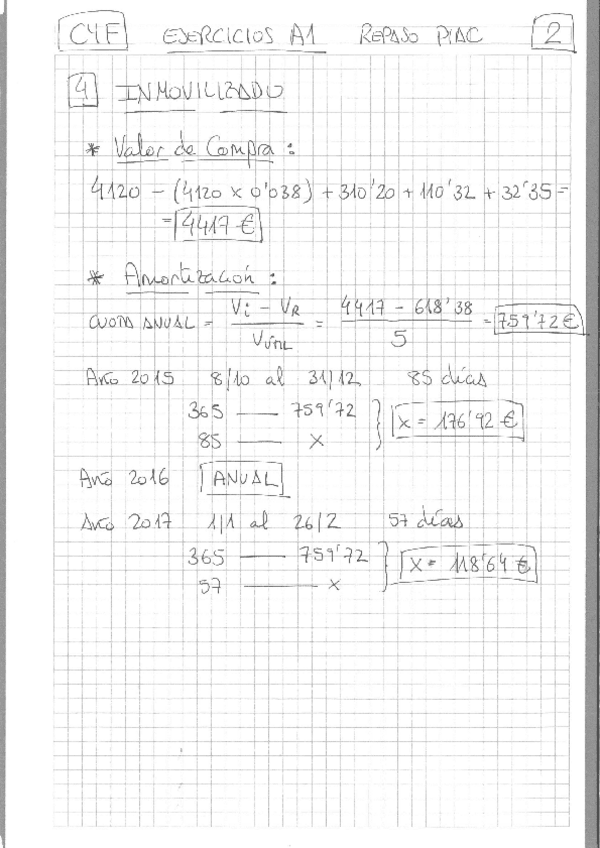 C4F EJERCICIOS A1 REPASO PIAC 2
4 INMOVILIZADO
* Valor de Compra :
4120 - (4120 x 0'038) + 310'20 + 110'32 + 32'35 =
= 4417 €
* Amortización :
CUOTA ANUAL = Vi - VR / VÚTIL = 4417 - 618'38 / 5 = 759'72 €
Año 2015 8/10 al 31/12 85 días
365 — 759'72
85 — x } x = 176'92 €
Año 2016 ANUAL
Año 2017 1/1 al 26/2 57 días
365 — 759'72
57 — x } x = 118'64 €